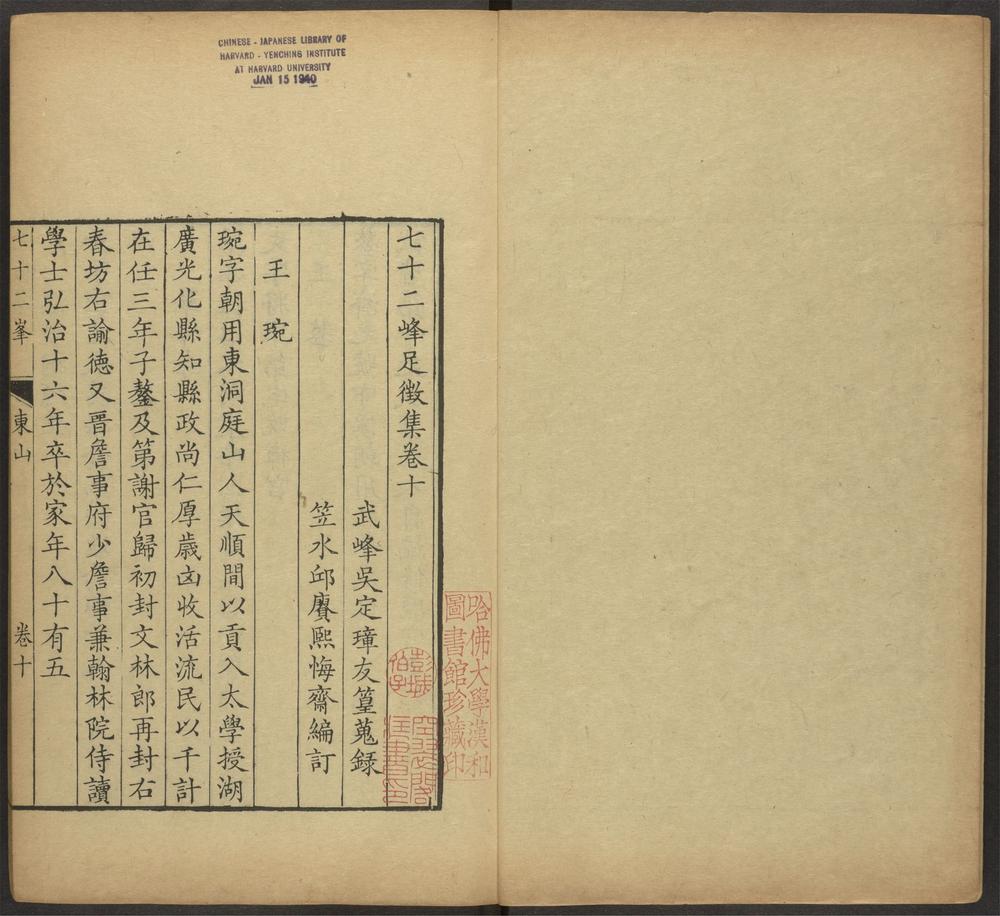 CHINESE - JAPANESE LIBRARY OF
HARVARD - YENCHING INSTITUTE
AT HARVARD UNIVERSITY
JAN 15 1940
七十二峰足徴集卷十
武峰吳定璋友篁蒐録
笠水邱賡熙悔齋編訂
王琬
琬字朝用東洞庭山人天順間以貢入太學授湖
廣光化縣知縣政尚仁厚歳凶收活流民以千計
在任三年子鏊及第謝官歸初封文林郎再封右
春坊右諭德又晉詹事府少詹事兼翰林院侍讀
學士弘治十六年卒於家年八十有五
七十二峯 東山 卷十
哈佛大學漢和
圖書館珍藏印
彭城
伯子